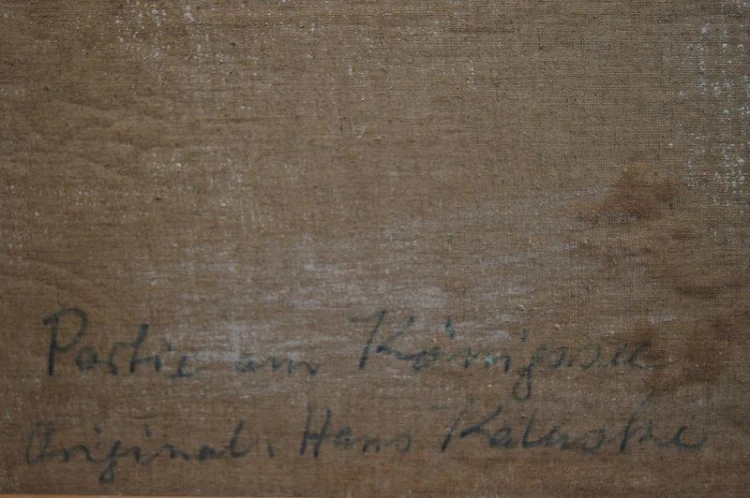 Partie am Königssee
Original. Hans